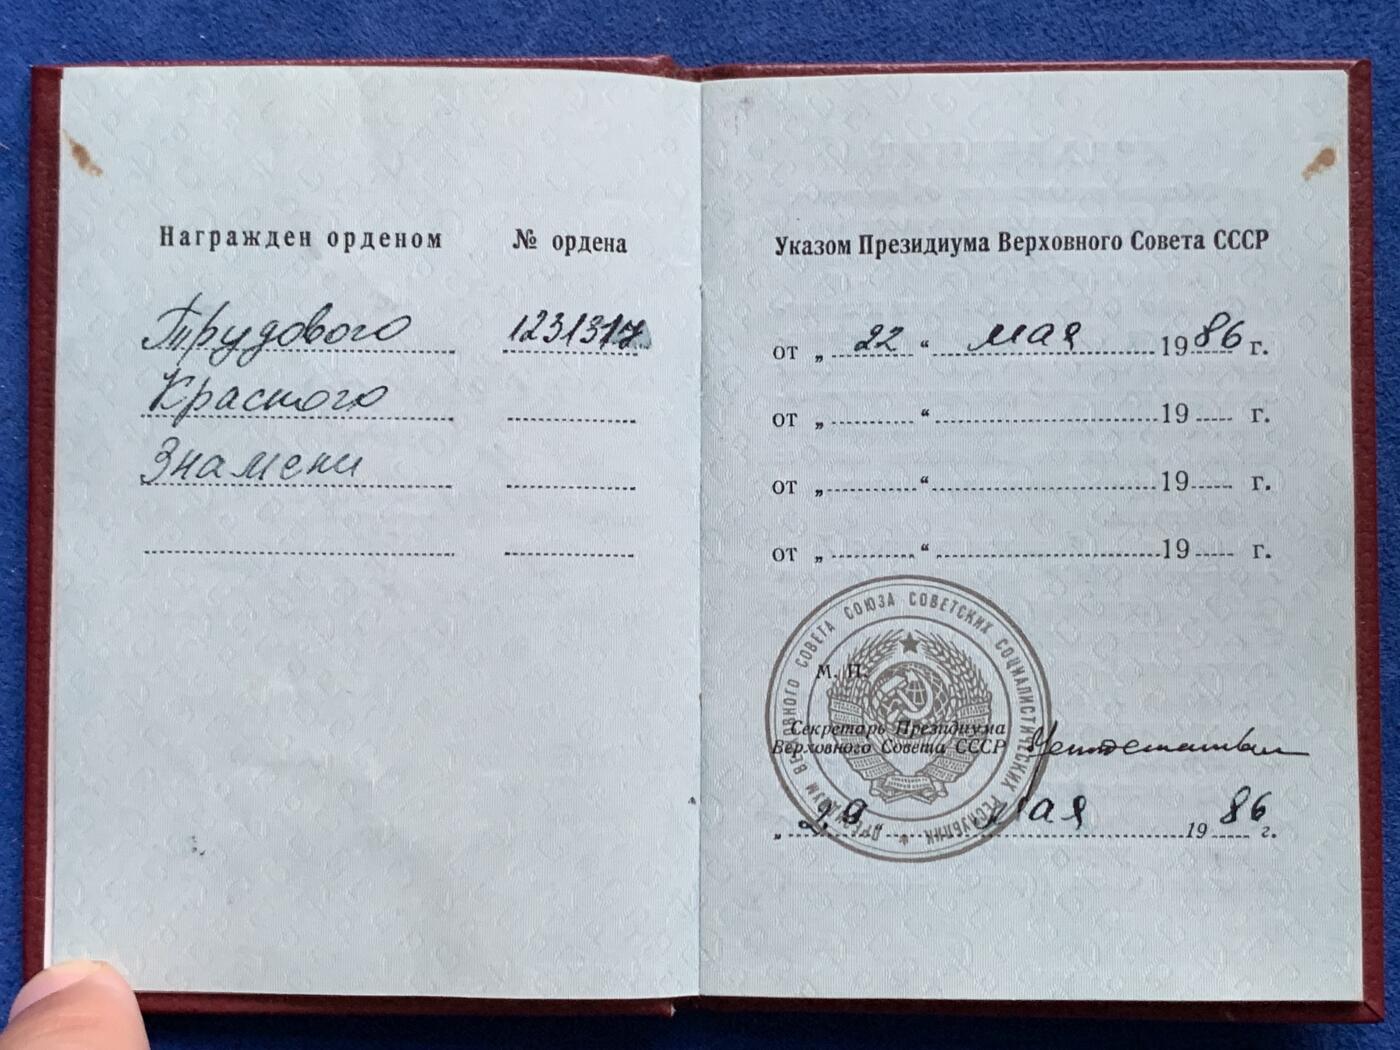 Награжден орденом № ордена
Трудового 1231317
Красного
Знамени
Указом Президиума Верховного Совета СССР
от „ 22 “ мая 1986 г.
от „ “ 19 г.
от „ “ 19 г.
от „ “ 19 г.
ПРЕЗИДИУМ ВЕРХОВНОГО СОВЕТА СОЮЗА СОВЕТСКИХ СОЦИАЛИСТИЧЕСКИХ РЕСПУБЛИК
М. П.
Секретарь Президиума
Верховного Совета СССР
„ 29 мая 1986 г.